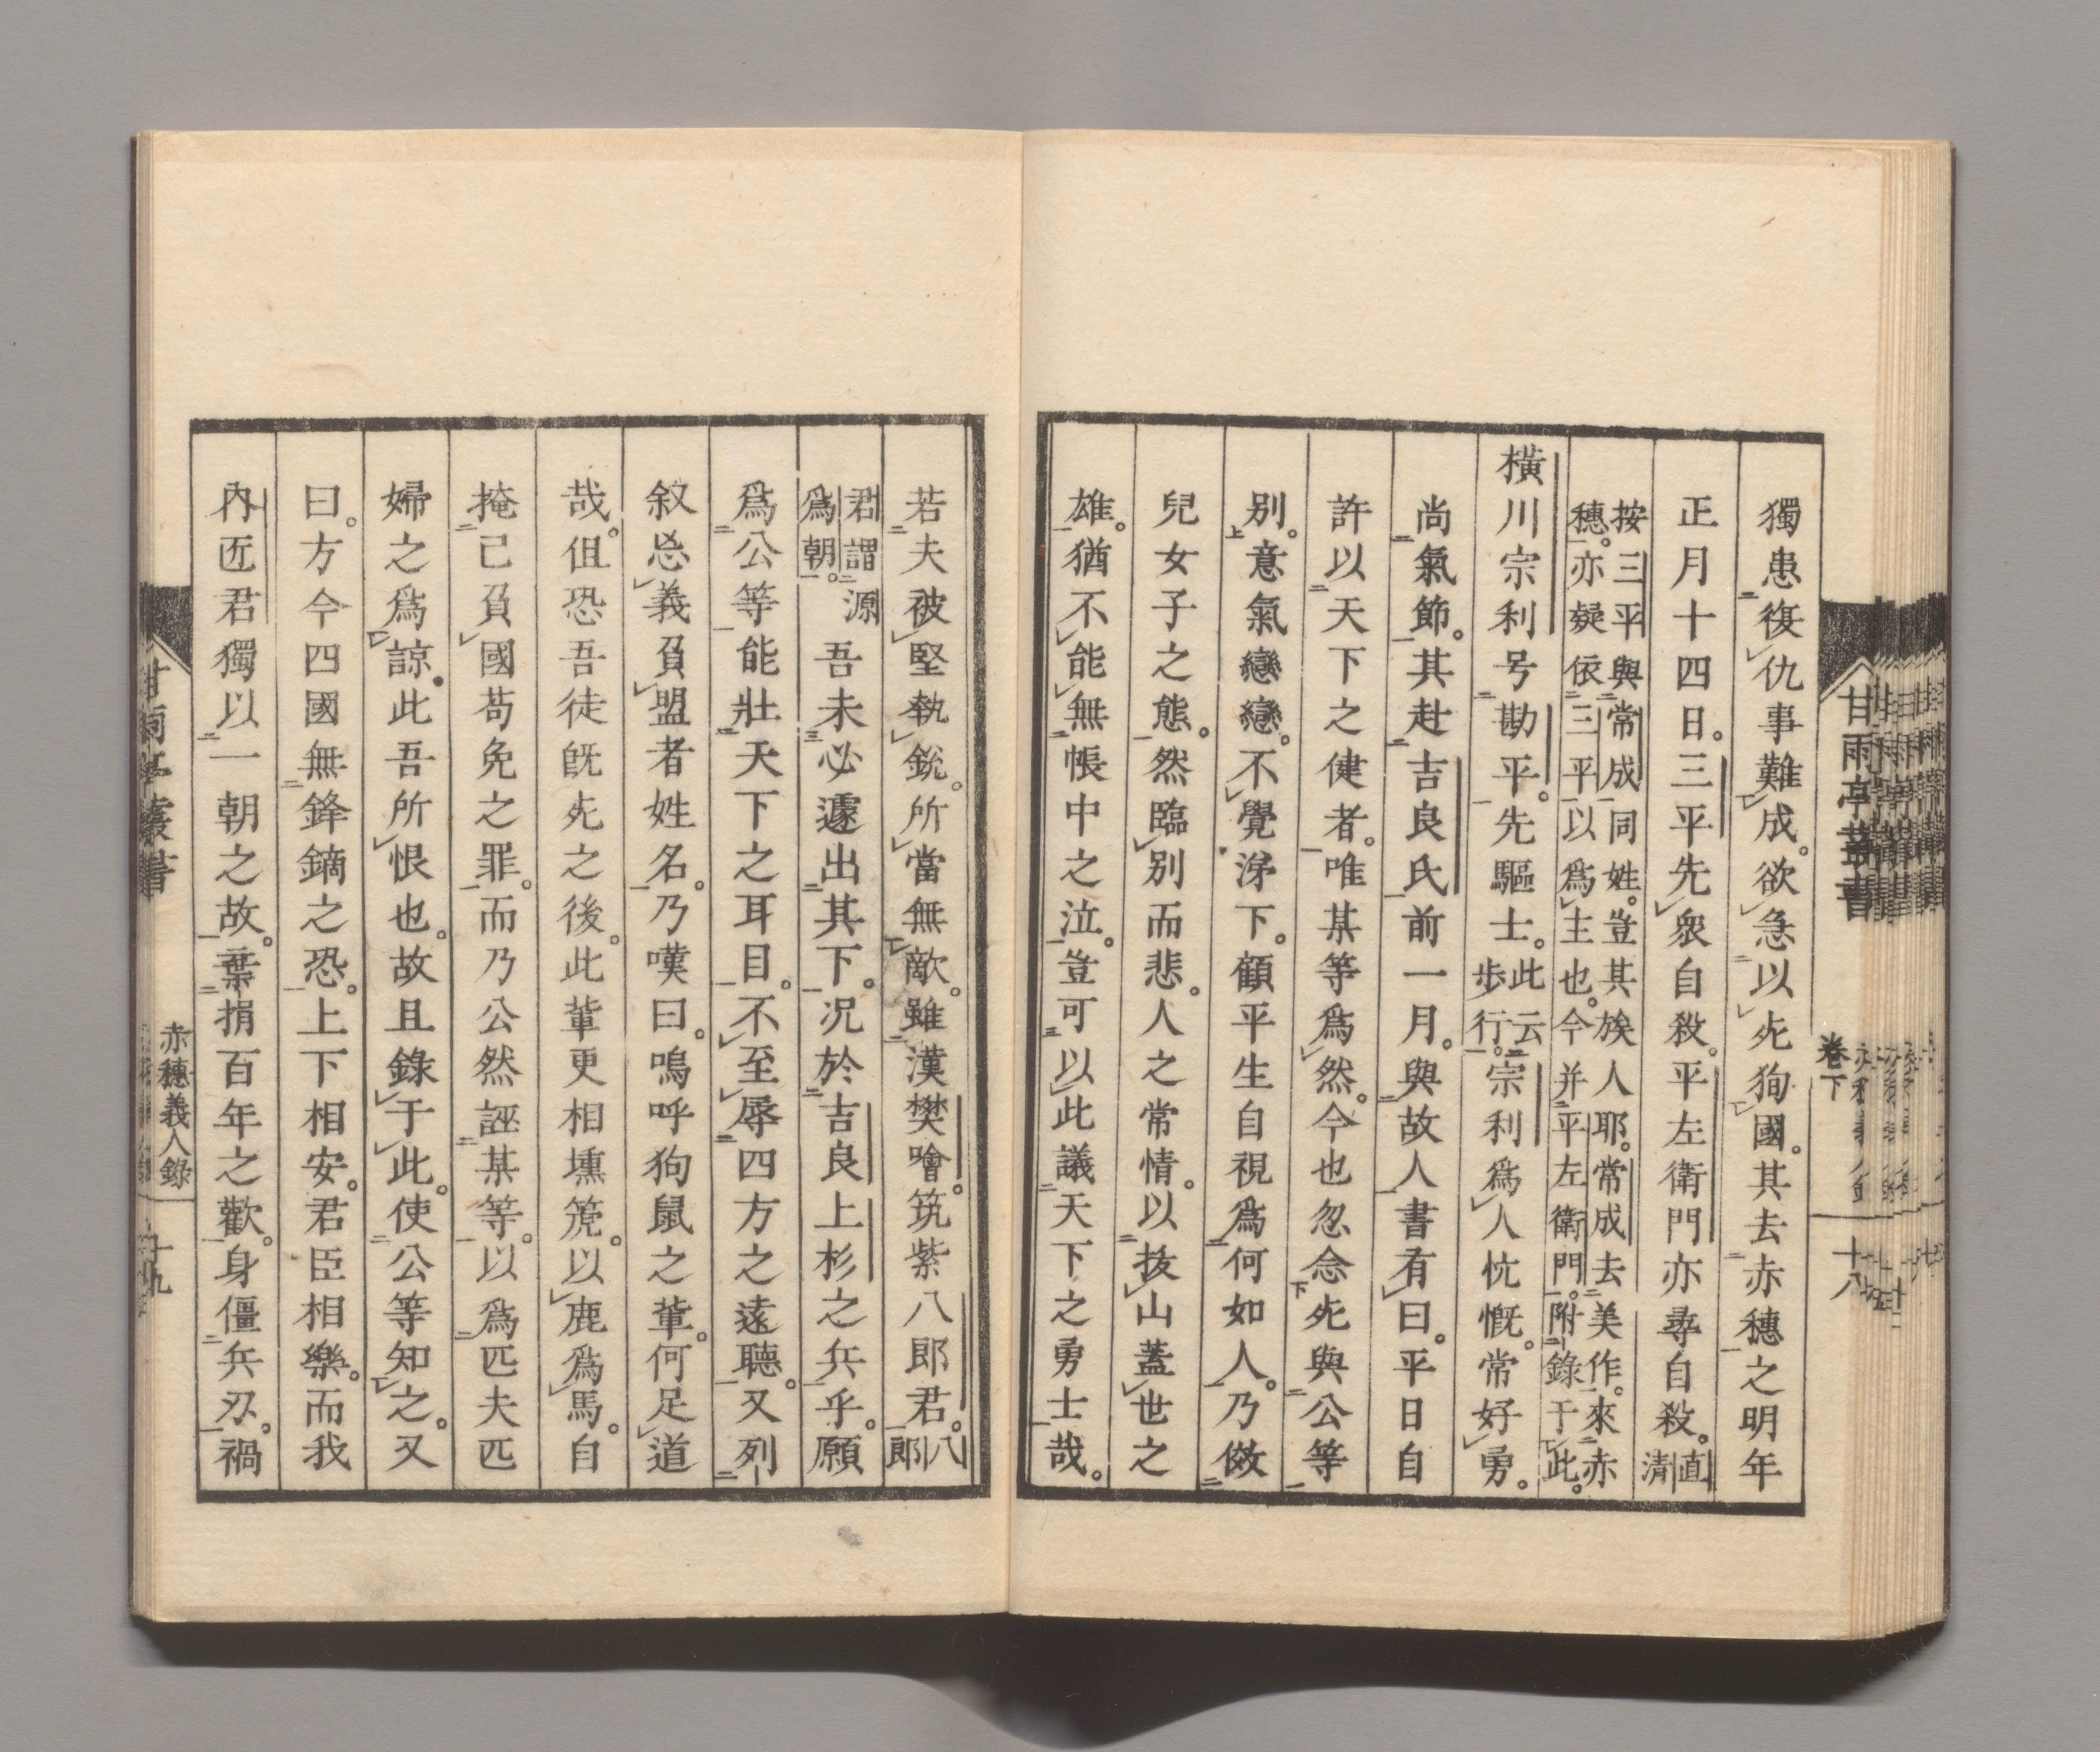 甘雨亭叢書
卷下
十八
獨患復仇事難成。欲急以死狥國。其去赤穗之明年
正月十四日。三平先衆自殺。平左衛門亦尋自殺。直清
按三平與常成同姓。豈其族人耶。常成去美作。來赤
穗。亦疑依三平以爲主也。今并平左衛門。附錄于此。
橫川宗利号勘平。先驅士。此云步行。宗利爲人忼慨。常好勇。
尚氣節。其赴吉良氏前一月。與故人書有曰。平日自
許以天下之健者。唯某等爲然。今也忽念死與公等
別。意氣戀戀。不覺涕下。顧平生自視爲何如人。乃傚
兒女子之態。然臨別而悲。人之常情。以拔山蓋世之
雄。猶不能無帳中之泣。豈可以此議天下之勇士哉。
若夫被堅執銳。所當無敵。雖漢樊噲筑紫八郎君。八郎
君謂源爲朝。吾未必遽出其下。况於吉良上杉之兵乎。願
爲公等能壯天下之耳目。不至辱四方之遠聽。又列
叙忘義負盟者姓名。乃嘆曰。嗚呼狗鼠之輩。何足道
哉。但恐吾徒旣死之後。此輩更相壎篪。以鹿爲馬。自
掩己負國苟免之罪。而乃公然誣某等。以爲匹夫匹
婦之爲諒。此吾所恨也。故且錄于此。使公等知之。又
曰。方今四國無鋒鏑之恐。上下相安。君臣相樂。而我
內匠君獨以一朝之故。棄捐百年之歡。身僵兵刃。禍
甘雨亭叢書
赤穗義人錄
十九